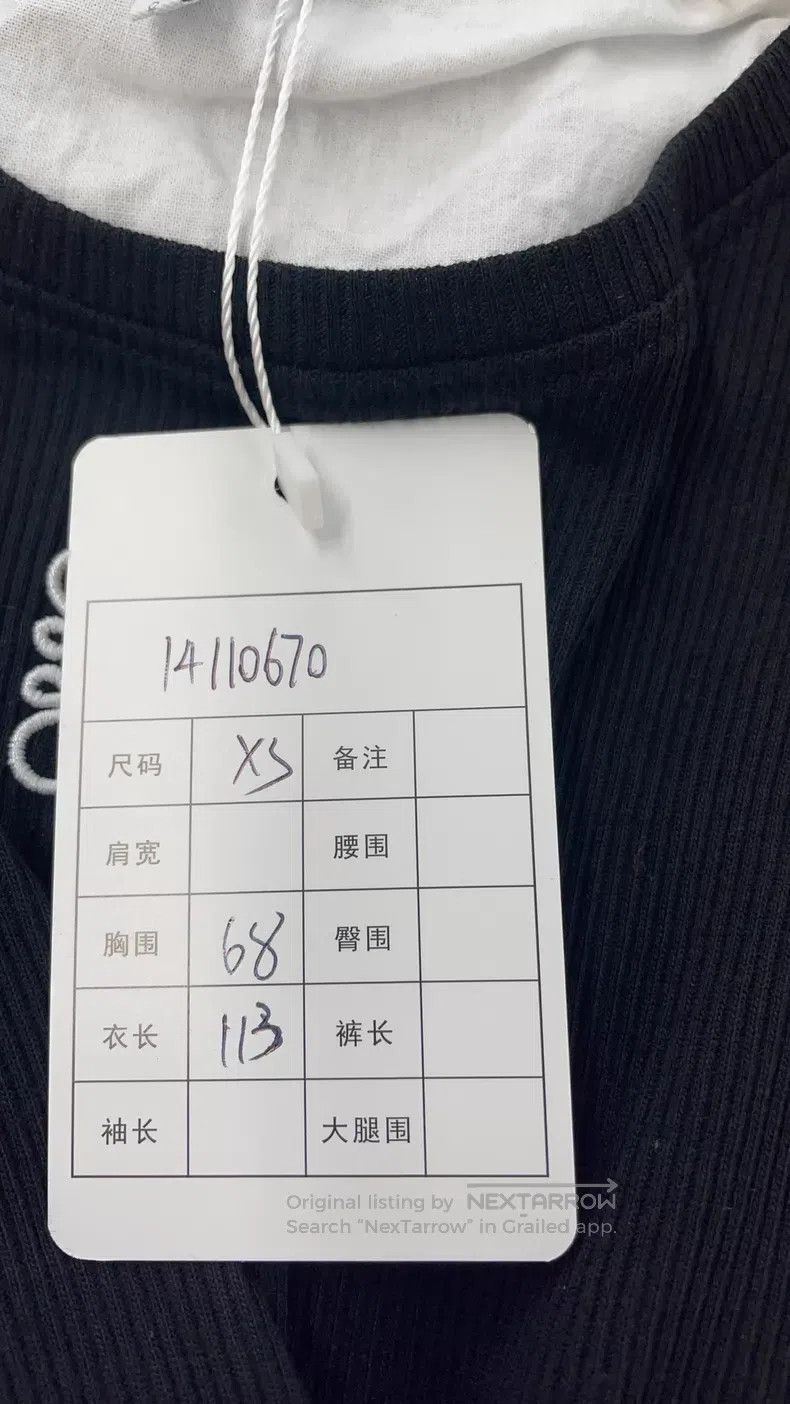 14110670
尺码 XS 备注
肩宽 腰围
胸围 68 臀围
衣长 113 裤长
袖长 大腿围
Original listing by NEXTARROW
Search "NexTarrow" in Grailed app.